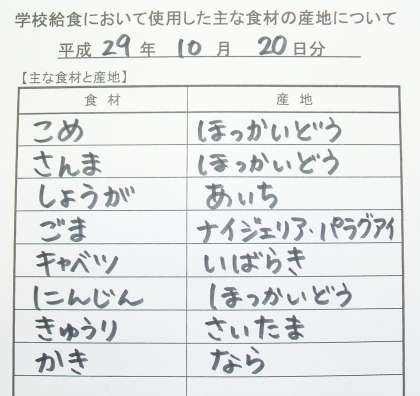 学校給食において使用した主な食材の産地について
平成 29 年 10 月 20 日分
【主な食材と産地】
食材 産地
こめ ほっかいどう
さんま ほっかいどう
しょうが あいち
ごま ナイジェリア・パラグアイ
キャベツ いばらき
にんじん ほっかいどう
きゅうり さいたま
かき なら